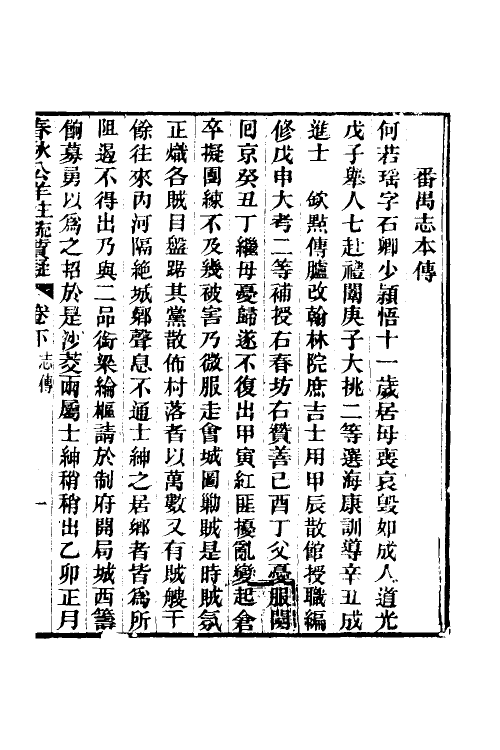 番禺志本傳
何若瑤字石卿少穎悟十一歲居母喪哀毀如成人道光
戊子舉人七赴禮闈庚子大挑二等選海康訓導辛丑成
進士　欽點傳臚改翰林院庶吉士用甲辰散館授職編
修戊申大考二等補授右春坊右贊善己酉丁父憂服闋
回京癸丑丁繼母憂歸遂不復出甲寅紅匪擾亂變起倉
卒擬團練不及幾被害乃微服走會城圖勦賊是時賊氛
正熾各賊目盤踞其黨散佈村落者以萬數又有賊艘千
餘往來內河隔絶城鄉聲息不通士紳之居鄉者皆爲所
阻遏不得出乃與二品銜梁綸樞請於制府開局城西籌
餉募勇以爲之招於是沙茭兩屬士紳稍稍出乙卯正月
春秋公羊注疏質疑　卷下　志傳　一